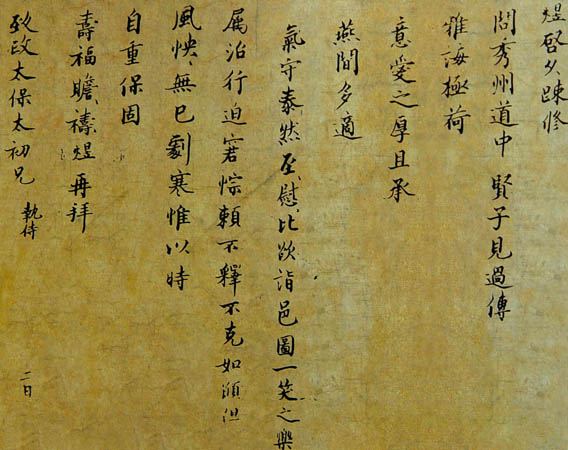 煜啓久疎修
問秀州道中賢子見過傳
雅誨極荷
意愛之厚且承
燕閒多適
氣守泰然至慰至慰比欲詣邑圖一笑之樂
属治行迫窘悰賴不釋不克如願但
風怏怏無已劇寒惟以時
自重保固
壽福瞻禱瞻禱煜再拜
致政太保太初兄 執侍
二日